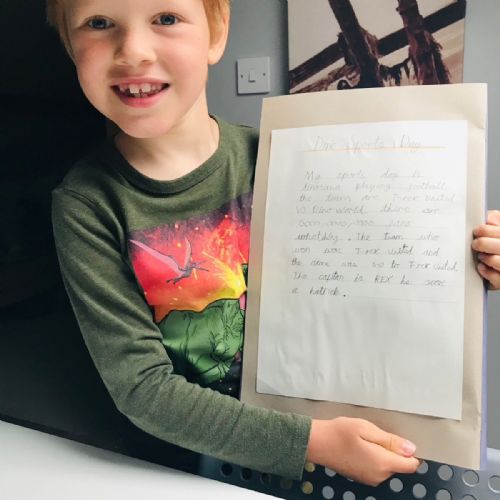 Dino Sports Day
My sports day is
dinosaurs playing football
the team are T-rex united
VS Dino world there are
5000,000,000 fans
watching. The team who
won was T-rex united and
the score was 3-0 to T-rex united.
The captin is REX he score
a hatrick.